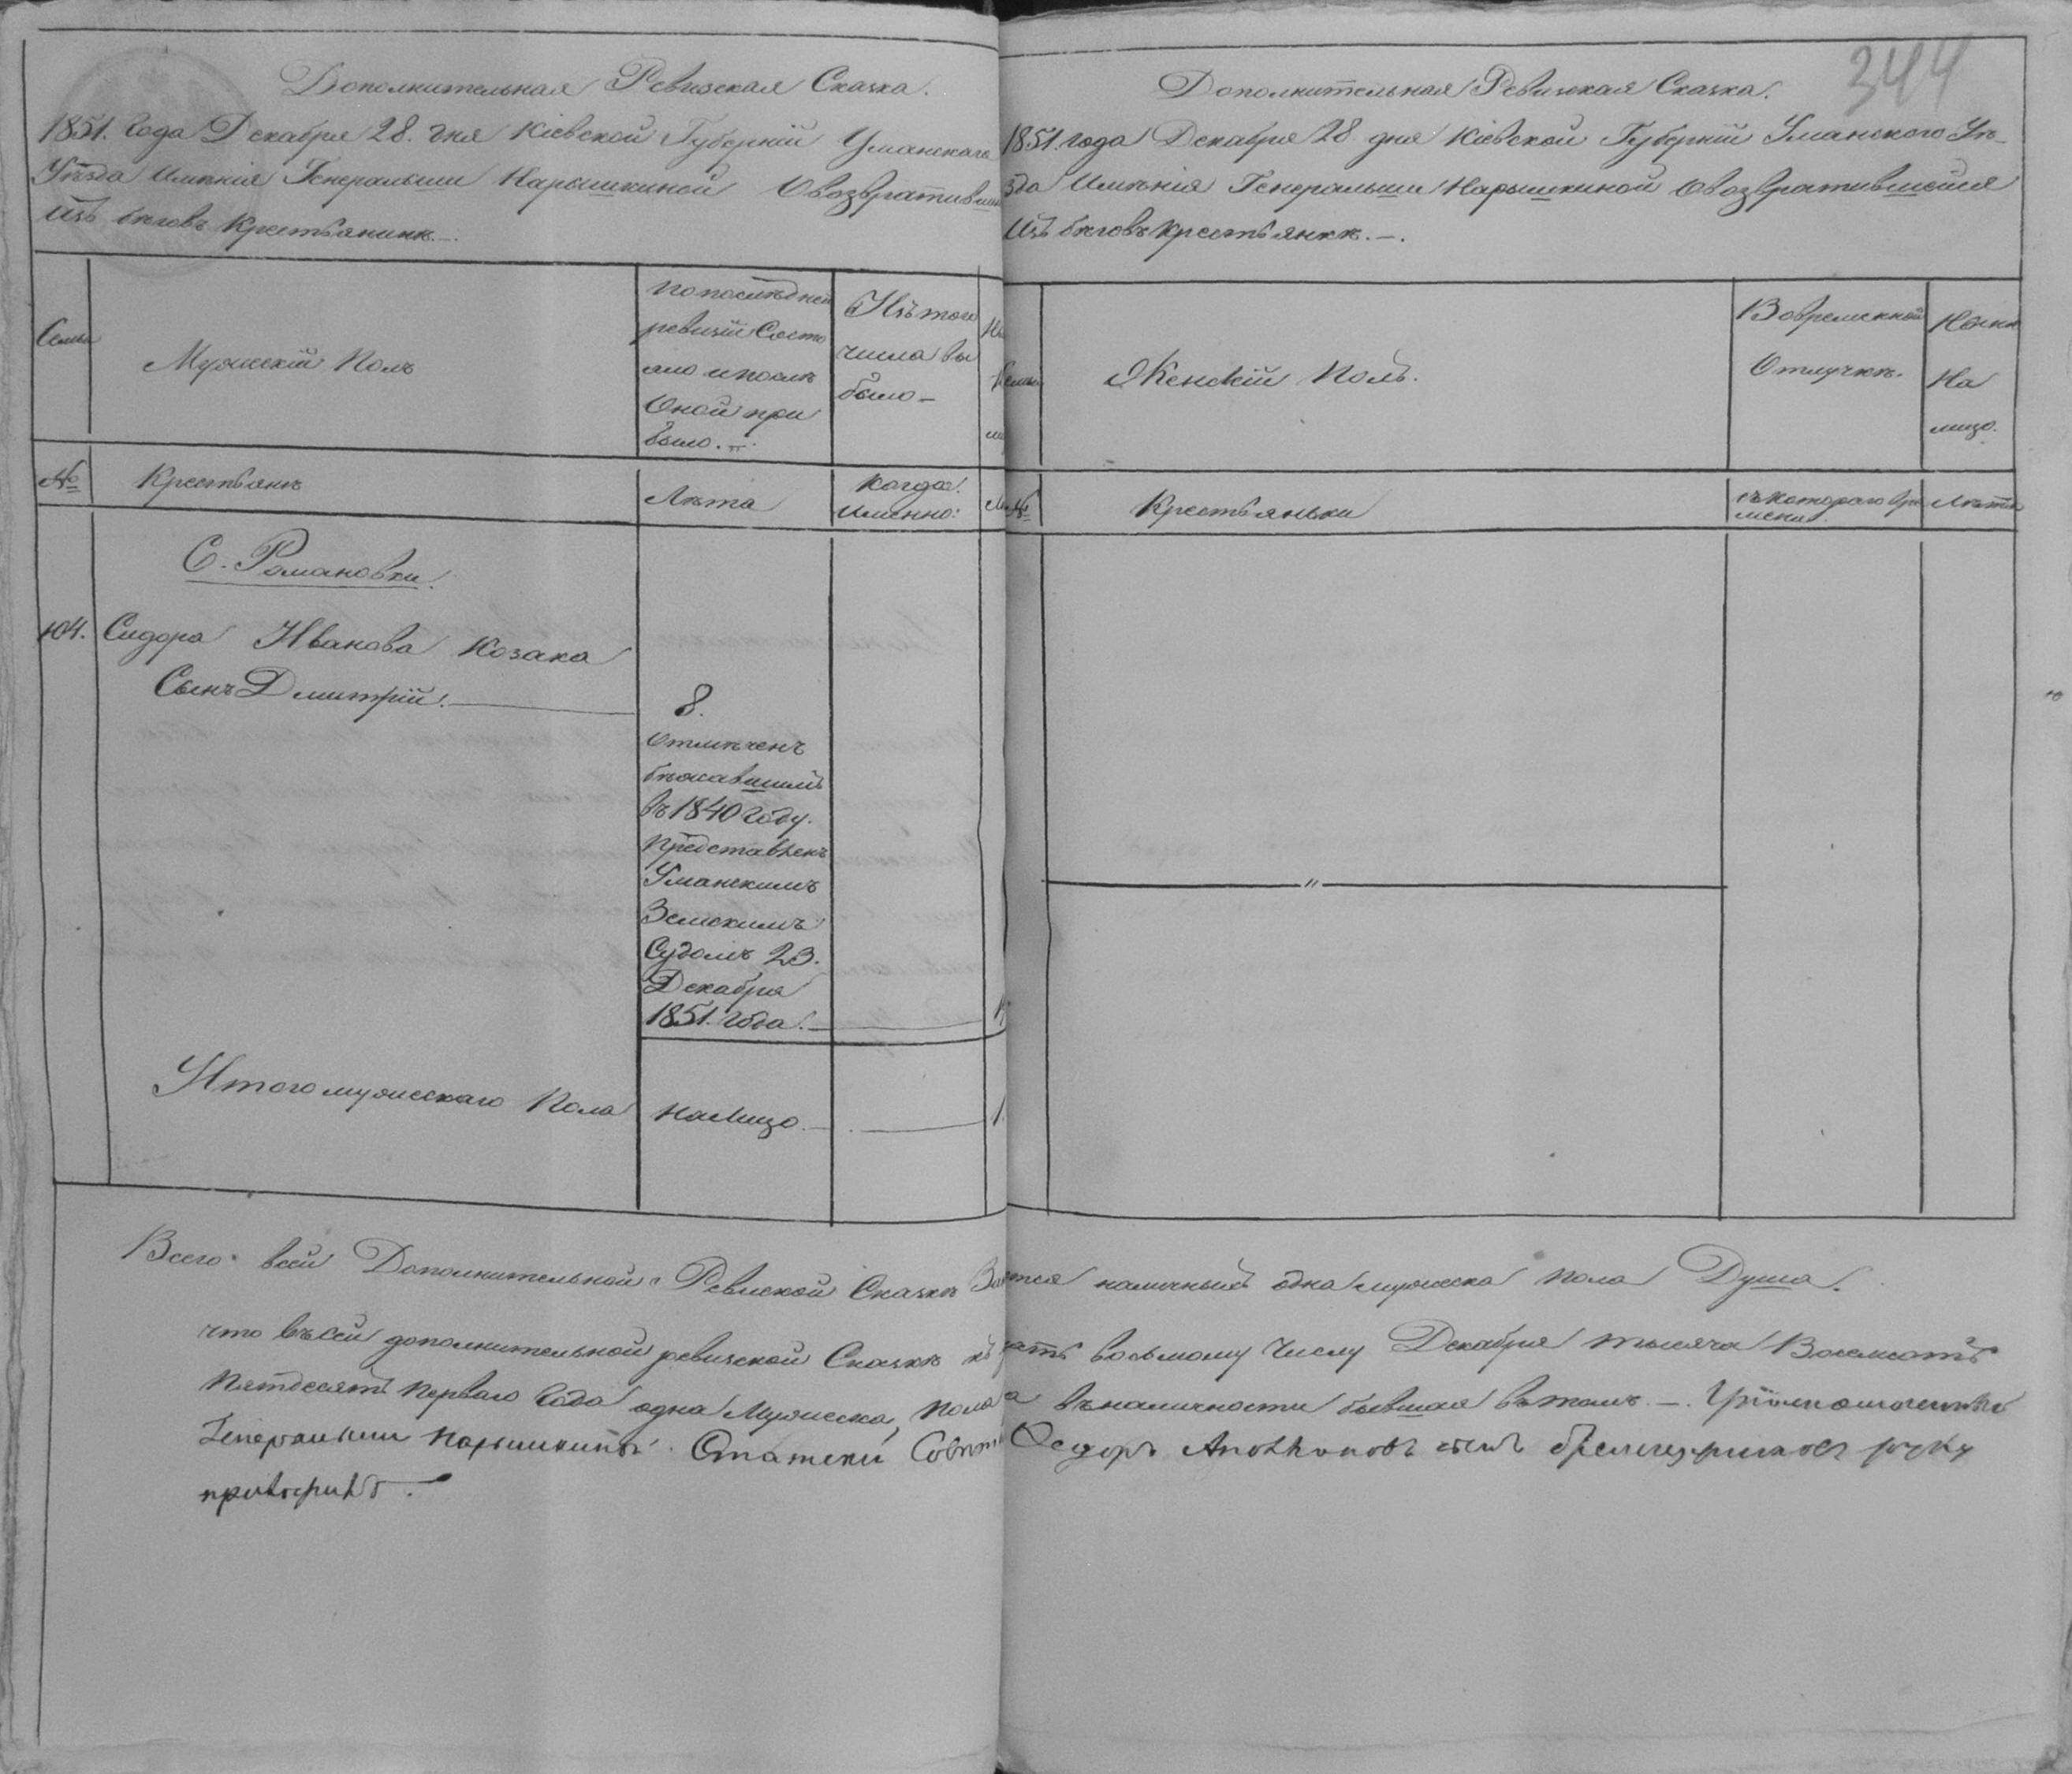 Дополнительная Ревизская Сказка.
1851. Года Декабря 28. дня Кіевской Губерніи Уманскаго
Уѣзда Имѣнія Генеральши Нарышкиной О возвратившемся
Изъ бѣговъ Крестьянинѣ.
Семьи
Мужескій Полъ
По послѣдней
ревизіи Состо
яло и послѣ
Оной при
было.
Изъ того
числа вы
было
№
Крестьянъ
Лѣта
Когда
Именно:
С. Романовки.
104. Сидора Иванова Козака
Сынъ Дмитрій.
8.
Отмѣченъ
бѣжавшимъ
въ 1840 Году.
Представленъ
Уманскимъ
Земскимъ
Судомъ 23.
Декабря
1851. Года.
1.
Итого мужескаго Пола
На Лицо
1.
344
Дополнительная Ревизская Сказка.
1851. года Декабря 28 дня Кіевской Губерніи Уманского Уѣ-
зда Имѣнія Генеральши Нарышкиной О возвратившейся
Изъ бѣговъ Крестьянкѣ.
Семьи
Женскій Полъ.
Во временной
Отлучкѣ.
Нынѣ
На
лицо.
№
Крестьяньки
съ котораго вре
мени
Лѣта
Всего всей Дополнительной Ревиской Сказкѣ наличныхъ одна мужеска Пола Душа.
что въ сей дополнительной ревизской Сказкѣ къ восьмому Числу Декабря тысяча Восемсотъ
Пятдесятъ Перваго Года одна Мужеска, Пола въ наличности бывшая въ томъ.
Генеральши Нарышкиной Статскій Совѣтн Федоръ сынъ руку
приложилъ.